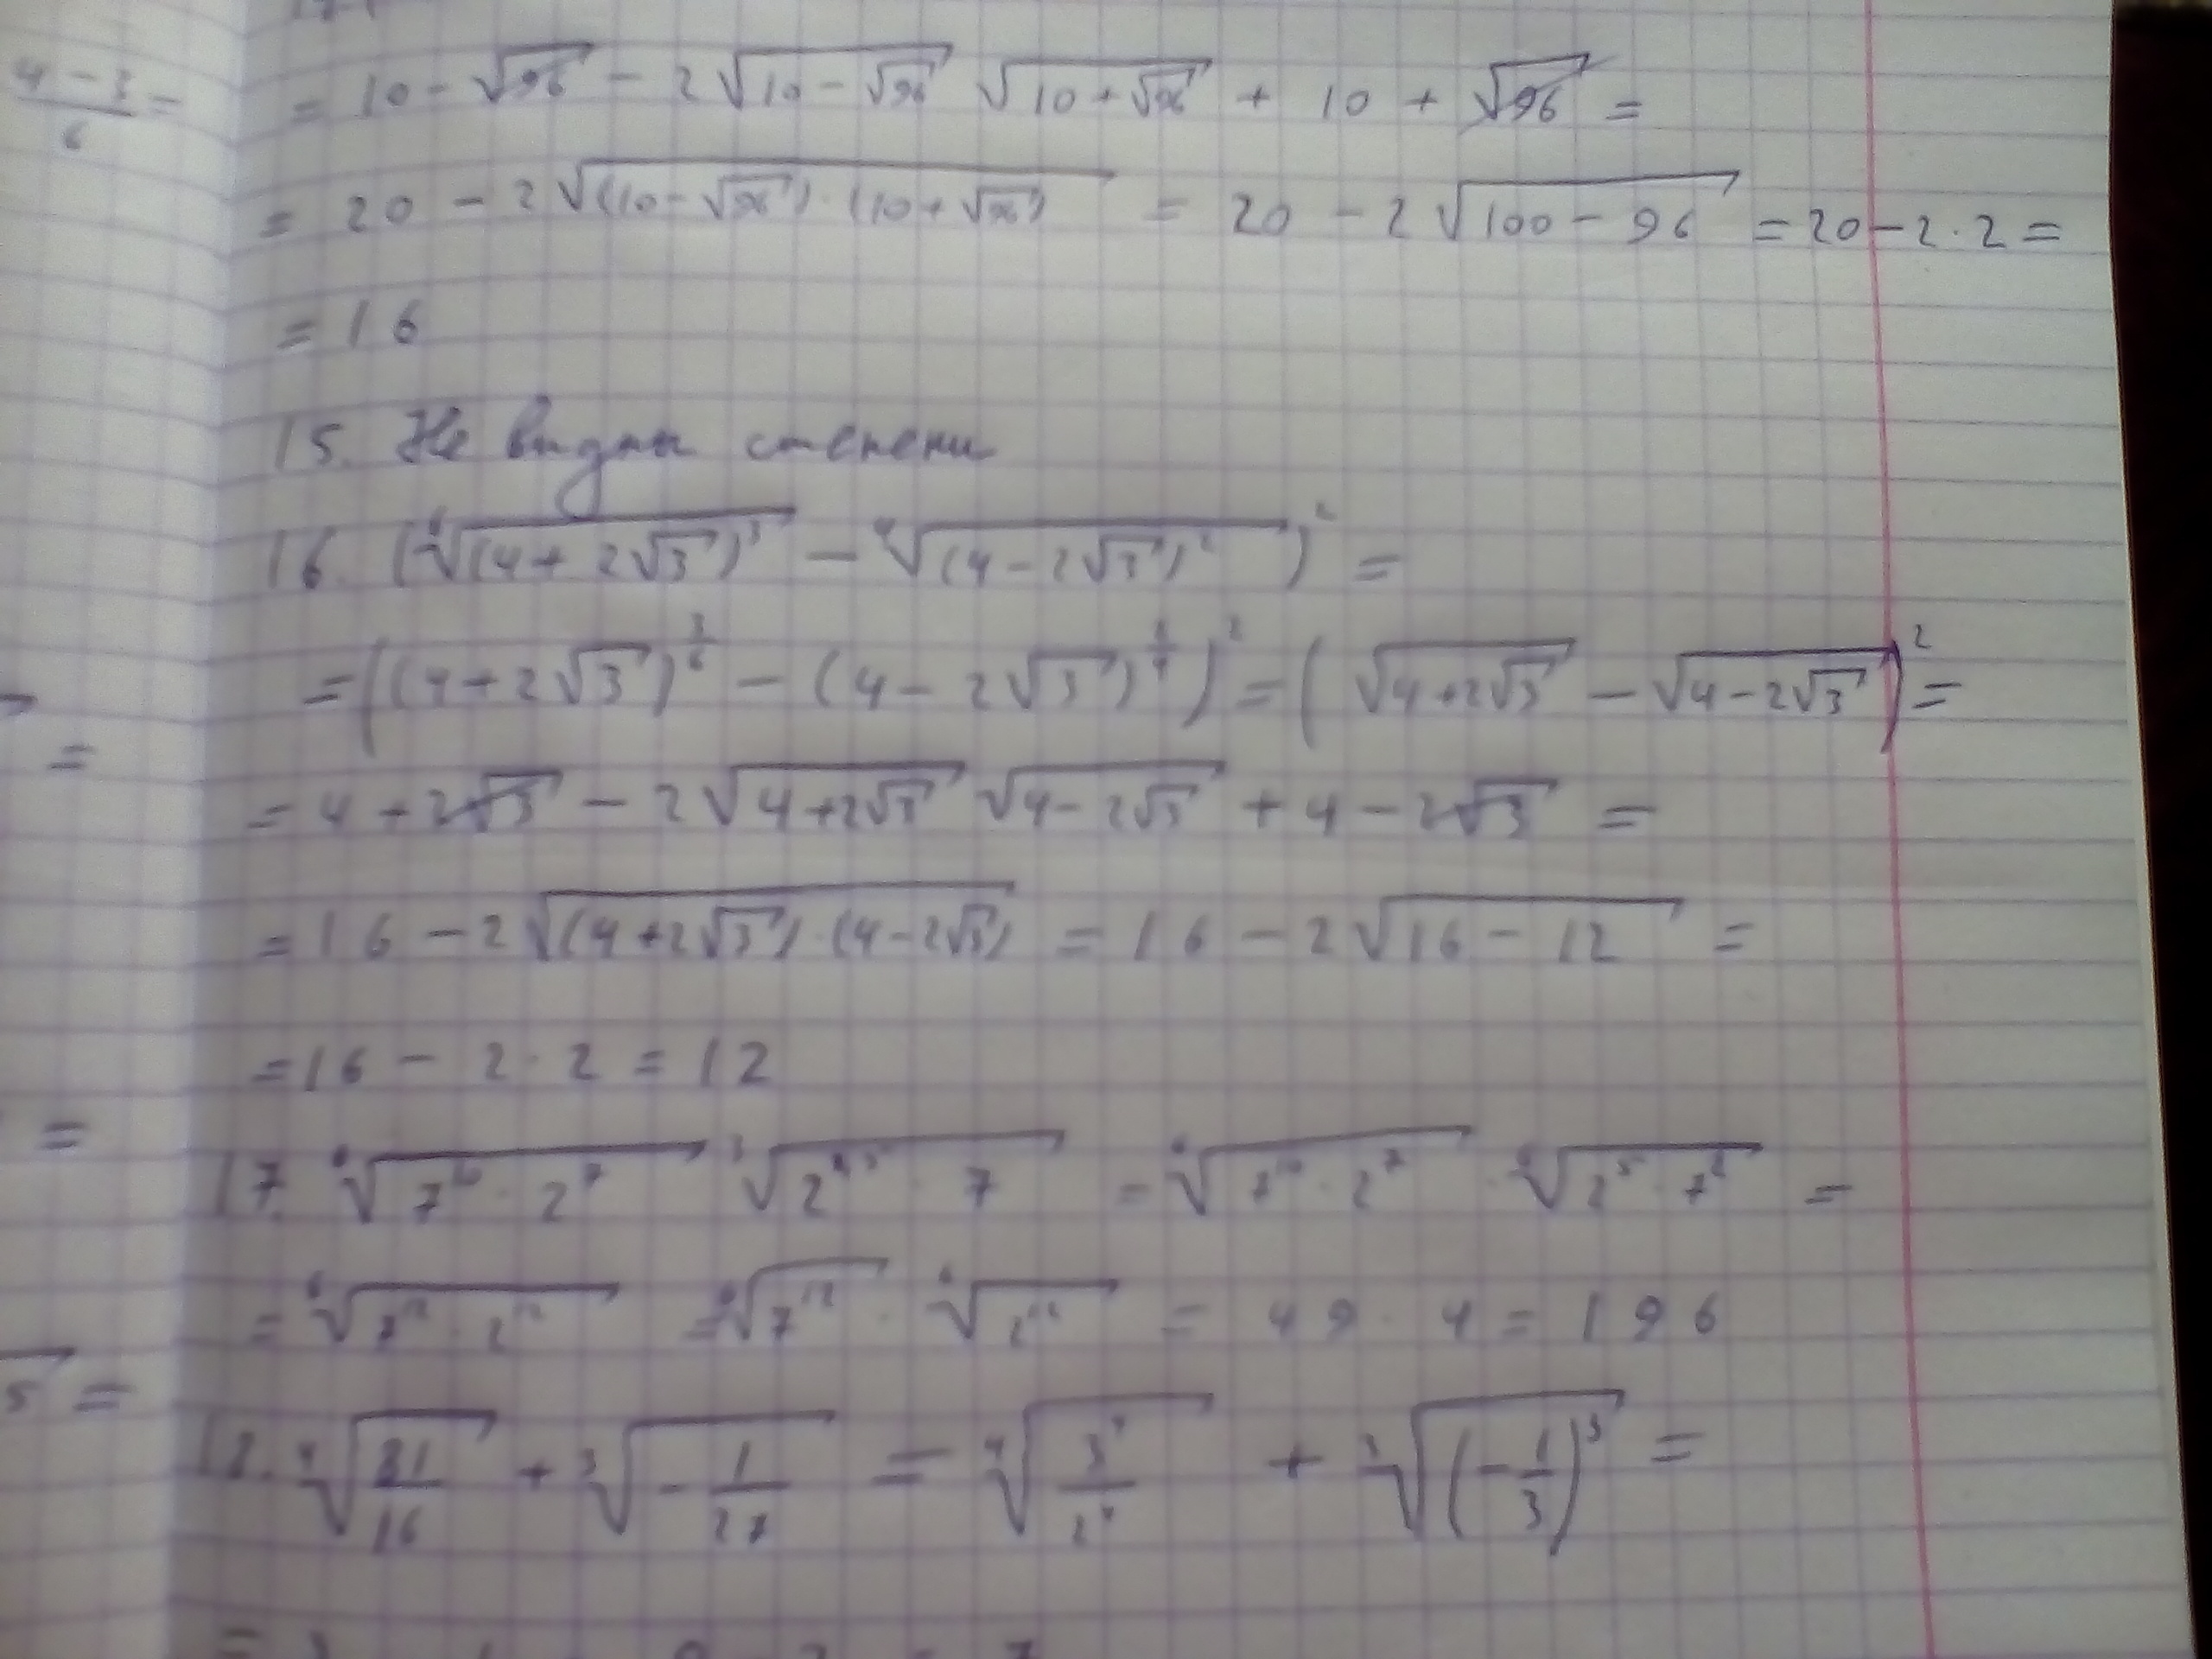 4 - 3 / 6 =
= 10 - √96 - 2√(10 - √96) √(10 + √96) + 10 + √96 =
= 20 - 2√((10 - √96) · (10 + √96)) = 20 - 2√(100 - 96) = 20 - 2 · 2 =
= 16
15. Не видны степени
16. (⁶√((4 + 2√3)³) - ⁴√((4 - 2√3)²))² =
= ((4 + 2√3)^(3/6) - (4 - 2√3)^(2/4))² = (√(4 + 2√3) - √(4 - 2√3))² =
= 4 + 2√3 - 2√(4 + 2√3) √(4 - 2√3) + 4 - 2√3 =
= 16 - 2√((4 + 2√3) · (4 - 2√3)) = 16 - 2√(16 - 12) =
= 16 - 2 · 2 = 12
17. ⁶√(7¹⁰ · 2⁷) ³√(2^2,5 · 7) = ⁶√(7¹⁰ · 2⁷) · ⁶√(2⁵ · 7²) =
= ⁶√(7¹² · 2¹²) = ⁶√(7¹²) · ⁶√(2¹²) = 49 · 4 = 196
18. ⁴√(81/16) + ³√(-1/27) = ⁴√(3⁴/2⁴) + ³√((-1/3)³) =